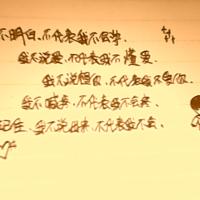 不明白,不代表我不会学.
我不说爱,不代表我不懂爱
我不说恨,不代表我不
我不喊疼,不代表我不会疼.
记住,我不说出来,不代表我不会.